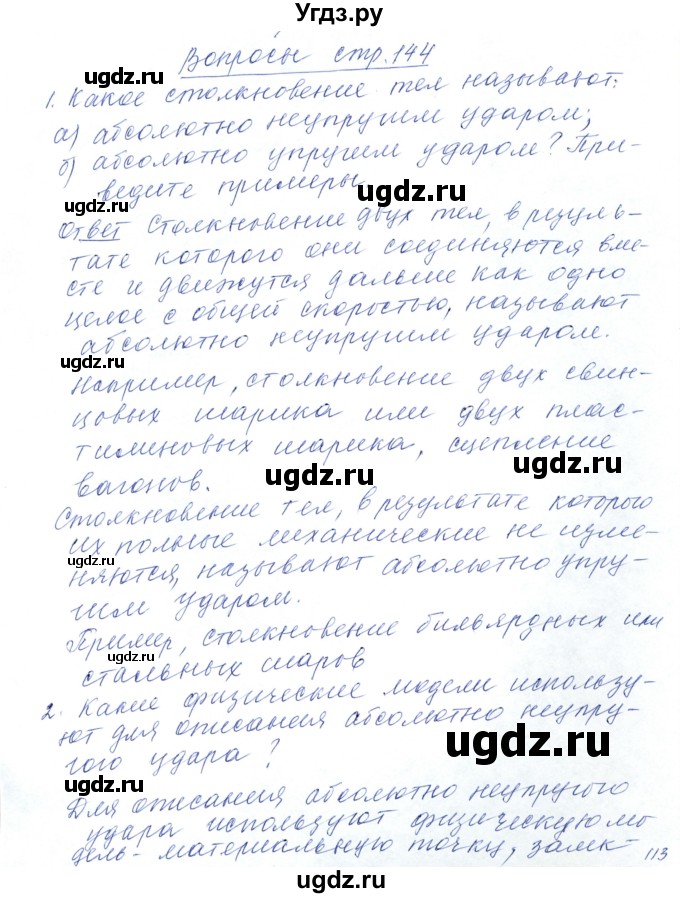 Угдз.ру
Вопросы стр. 144
1. Какое столкновение тел называют:
а) абсолютно неупругим ударом;
б) абсолютно упругим ударом? При-
ведите примеры
Ответ Столкновение двух тел, в резуль-
тате которого они соединяются вме-
сте и движутся дальше как одно
целое с общей скоростью, называют
абсолютно неупругим ударом.
Например, столкновение двух свин-
цовых шарика или двух плас-
тилиновых шарика, сцепление
вагонов.
Столкновение тел, в результате которого
их полные механические не изме-
няются, называют абсолютно упру-
гим ударом.
Пример, столкновение бильярдных или
стальных шаров
2. Какие физические модели использу-
ют для описания абсолютно неупру-
гого удара?
Для описания абсолютно неупругого
удара используют физическую мо
дель - материальную точку, замк-
113
ugdz.ru
ugdz.ru
ugdz.ru
ugdz.ru
ugdz.ru
ugdz.ru
ugdz.ru
ugdz.ru
ugdz.ru
ugdz.ru
ugdz.ru